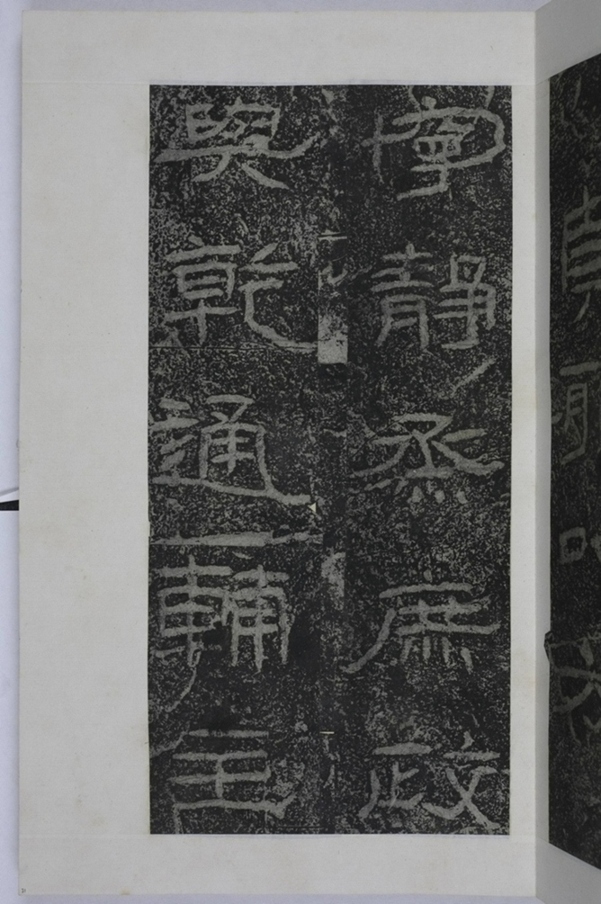 寧靜烝庶政
與乾通輔主